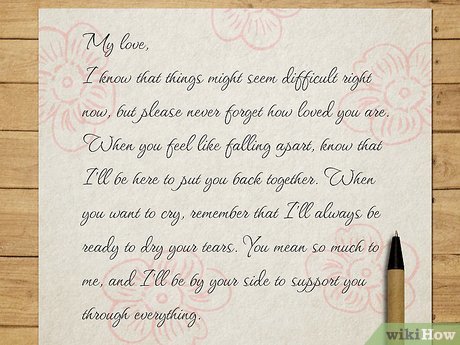 My love,
I know that things might seem difficult right
now, but please never forget how loved you are.
When you feel like falling apart, know that
I'll be here to put you back together. When
you want to cry, remember that I'll always be
ready to dry your tears. You mean so much to
me, and I'll be by your side to support you
through everything.
wikiHow